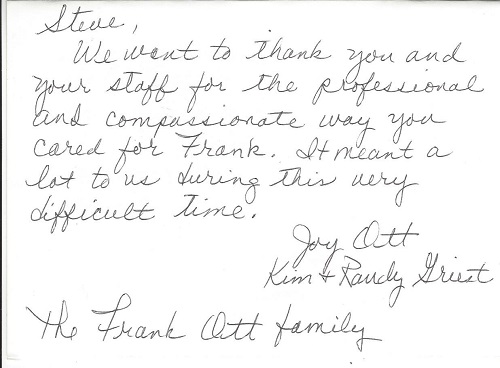 Steve,
We want to thank you and
your staff for the professional
and compassionate way you
cared for Frank. It meant a
lot to us during this very
difficult time.
Joy Ott
Kim & Randy Griest
The Frank Ott family